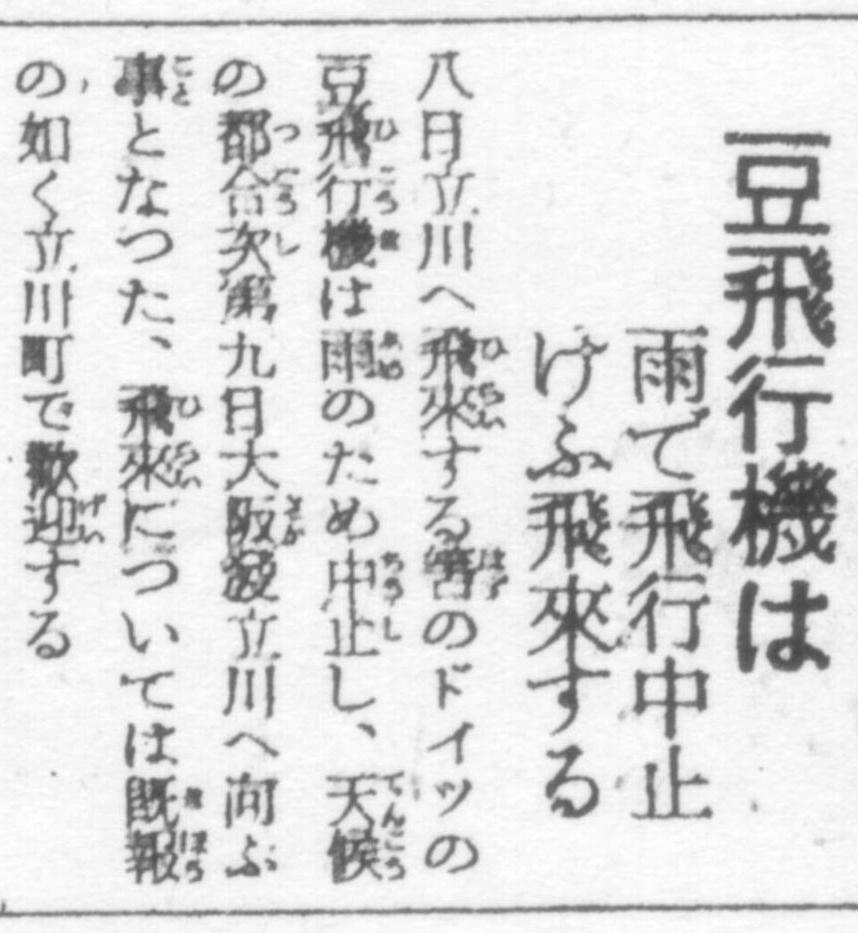 豆飛行機は
雨で飛行中止
けふ飛來する
八日立川へ飛來する筈のドイツの
豆飛行機は雨のため中止し、天候
の都合次第九日大阪發立川へ向ふ
事となつた、飛來については既報
の如く立川町で歡迎する